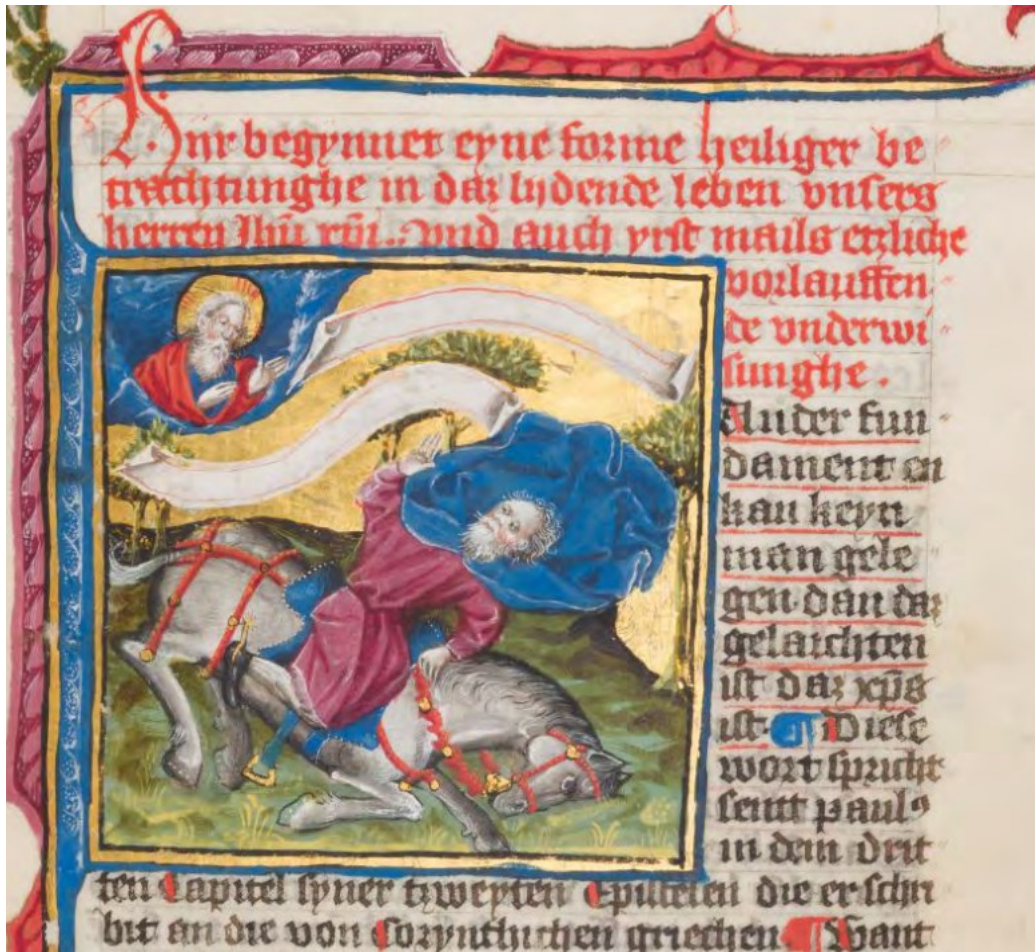 Hyr begynnet eyne forme heiliger be
trachtunghe in daz lydende leben vnsers
herren Jhū xp̄i. Vnd auch yrst mails etzliche
vorlauffen
de vnderwi
sunghe.
Ander fun
dament en
kan keyn
man gele
gen dan daz
gelaichten
ist daz xp̄s
ist. ¶ Diese
wort spricht
sent paulꝰ
in dem drit
ten Capitel syner tzweyten Epistelen die er schri
bit an die von Corynthichen griechen ¶ Want